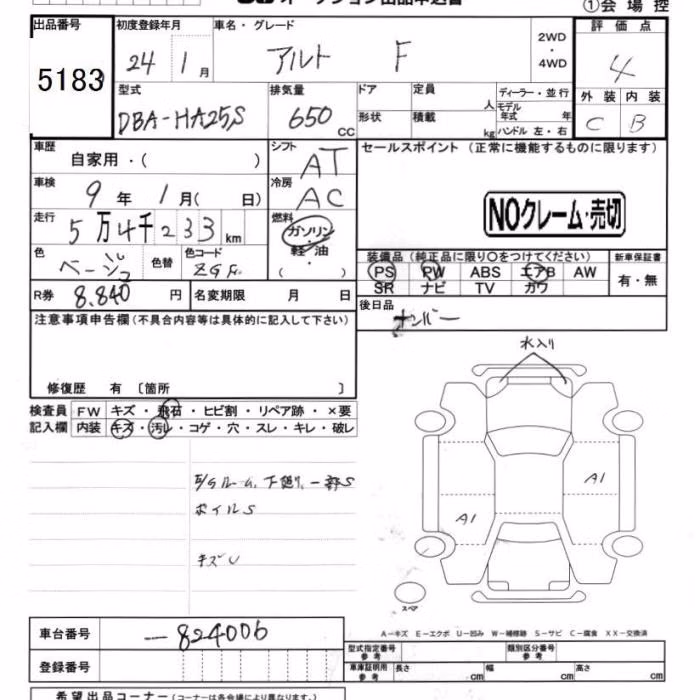 オークション出品申込書
①会場控
出品番号
5183
初度登録年月
24 1月
車名・グレード
アルト F
2WD
・
4WD
評価点
4
外装 内装
C B
型式
DBA-HA25S
排気量
650 CC
ドア
形状
定員 人
積載 kg
ディーラー・並行
モデル年式 年
ハンドル 左・右
車歴
自家用・( )
シフト
AT
車検
9年 1月( 日)
冷房
AC
走行
5万4千233 km
燃料
ガソリン
軽・油
( )
色
ベージュ
色替
色コード
R券
8,840 円
名変期限 月 日
セールスポイント(正常に機能するものに限ります)
NOクレーム・売切
装備品(純正品に限り○をつけてください)
PS PW ABS エアB AW
SR ナビ TV カワ
新車保証書
有・無
後日品
ナンバー
注意事項申告欄(不具合内容等は具体的に記入して下さい)
修復歴 有 〔箇所 〕
検査員
記入欄
FW キズ・飛石・ヒビ割・リペア跡・×要
内装 キズ・汚レ・コゲ・穴・スレ・キレ・破レ
E/Gルーム、下廻り、一部S
ホイルS
キズU
水入り
A1
A1
スペア
A－キズ E－エクボ U－凹み W－補修跡 S－サビ C－腐食 XX－交換済
車台番号
-824006
登録番号
型式指定番号
参考
類別区分番号
参考
車庫証明用
参考
長さ cm 幅 cm 高さ cm
希望出品コーナー(コーナーは各会場により異なります)